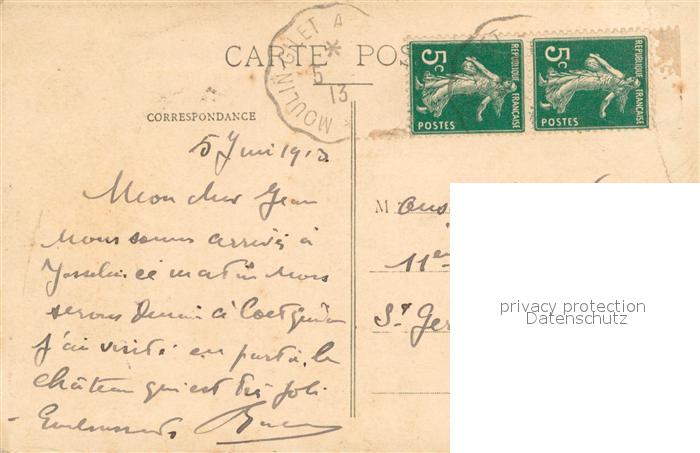 CARTE POS
MOULINS
A
5
13
5c
REPUBLIQUE FRANÇAISE
POSTES
5c
REPUBLIQUE FRANÇAISE
POSTES
CORRESPONDANCE
5 Juin 1913
Mon cher Jean
Nous sommes arrivés à
Josselin ce matin nous
serons demain à Coetquidan
j'ai visité en partie le
château qui est très joli
M
11e
St Ger
privacy protection
Datenschutz